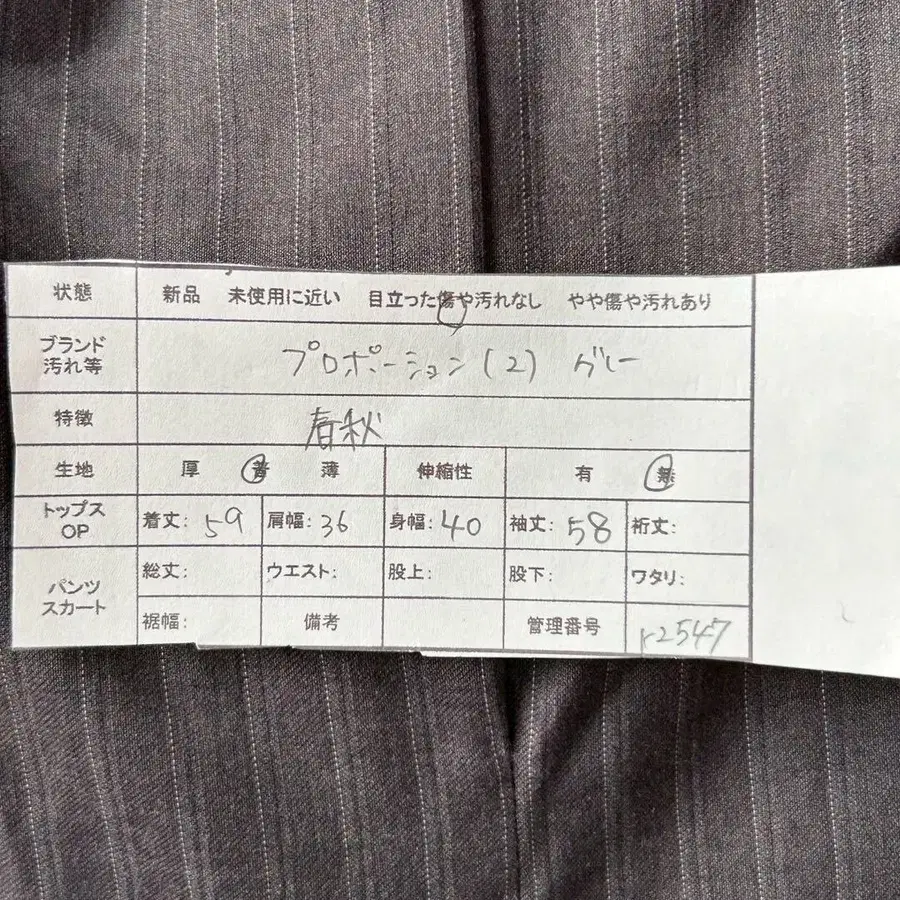 状態 新品 未使用に近い 目立った傷や汚れなし やや傷や汚れあり
ブランド
汚れ等 プロポーション(2) グレー
特徴 春秋
生地 厚 普 薄 伸縮性 有 無
トップス
OP 着丈: 59 肩幅: 36 身幅: 40 袖丈: 58 裄丈:
パンツ
スカート 総丈: ウエスト: 股上: 股下: ワタリ:
裾幅: 備考 管理番号 r2547